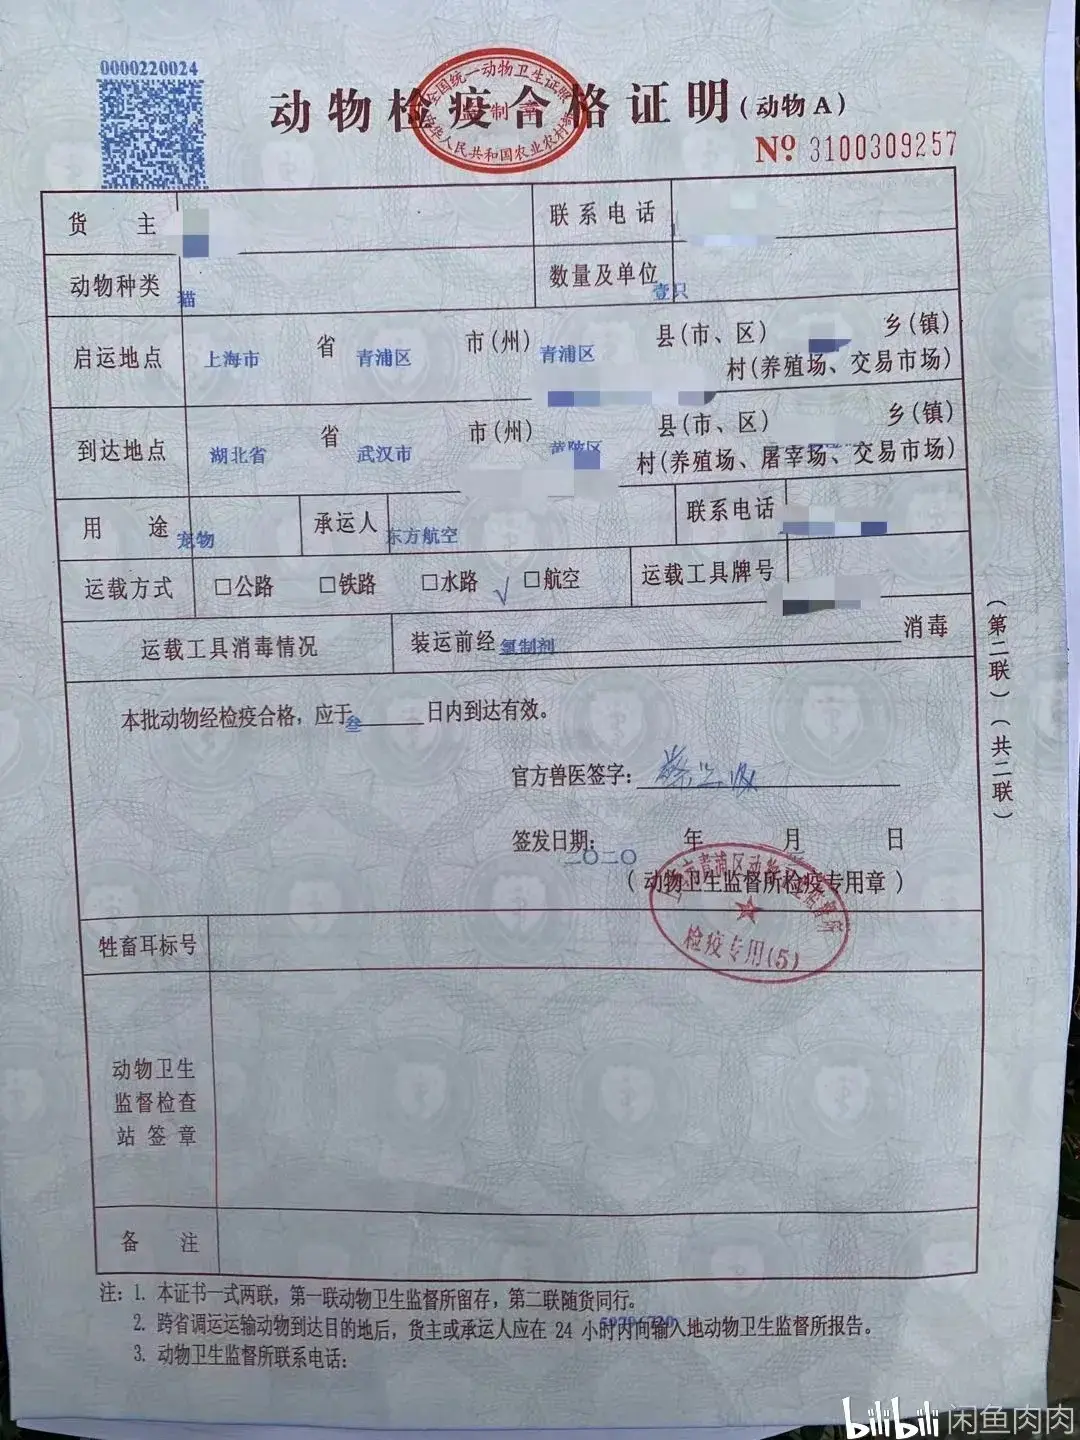 0000220024
动物检疫合格证明(动物A)
全国统一动物卫生证照
监制章
中华人民共和国农业农村部
№ 3100309257
货 主
联系电话
动物种类 猫
数量及单位 壹只
启运地点 上海市 省 青浦区 市(州) 青浦区 县(市、区) 乡(镇)
村(养殖场、交易市场)
到达地点 湖北省 省 武汉市 市(州) 黄陂区 县(市、区) 乡(镇)
村(养殖场、屠宰场、交易市场)
用 途 宠物 承运人 东方航空 联系电话
运载方式 □公路 □铁路 □水路 √ □航空 运载工具牌号
运载工具消毒情况 装运前经 氯制剂 消毒
本批动物经检疫合格,应于 叁 日内到达有效。
官方兽医签字:
签发日期: 二〇二〇 年 月 日
(动物卫生监督所检疫专用章)
检疫专用(5)
牲畜耳标号
动物卫生
监督检查
站签章
备 注
注:1. 本证书一式两联,第一联动物卫生监督所留存,第二联随货同行。
2. 跨省调运运输动物到达目的地后,货主或承运人应在 24 小时内向输入地动物卫生监督所报告。
3. 动物卫生监督所联系电话:
(第二联)(共二联)
bilibili 闲鱼肉肉